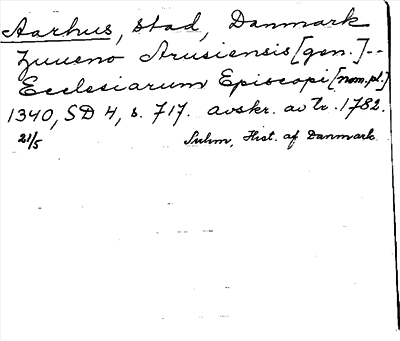 Aarhus, stad, Danmark
Zuueno Arusiensis [gen.] --
Ecclesiarum Episcopi [nom.pl.]
1340, SD 4, s. 717. avskr. av tr. 1782.
21/5 Suhm, Hist. af Danmark